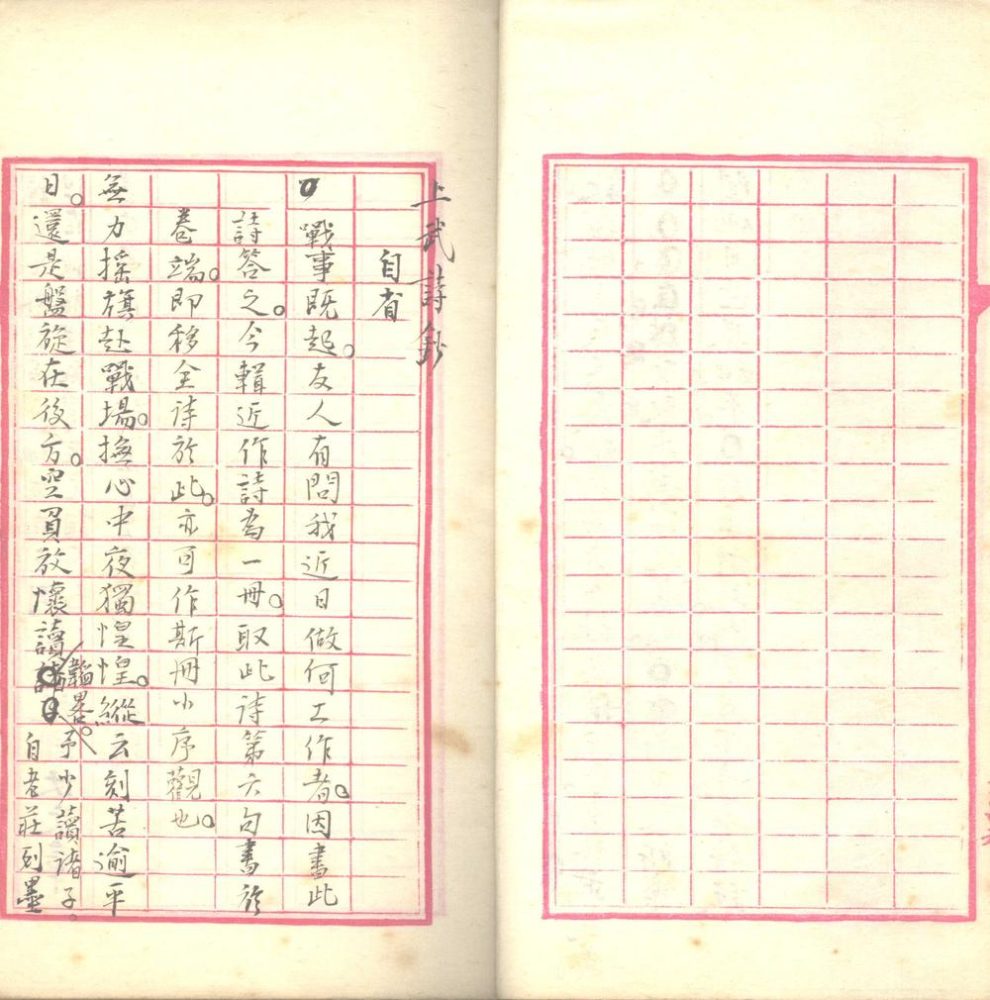 上武詩鈔
自省
戰事既起。友人有問我近日做何工作者。因書此
詩答之。今輯近作詩為一冊。取此詩第六句書於
卷端。即移全詩於此。亦可作斯冊小序觀也。
無力搖旗赴戰場。撫心中夜獨惶惶。縱云刻苦逾平
日。還是盤旋在後方。空負放懷讀韜畧。予少讀諸子。
自老莊列墨